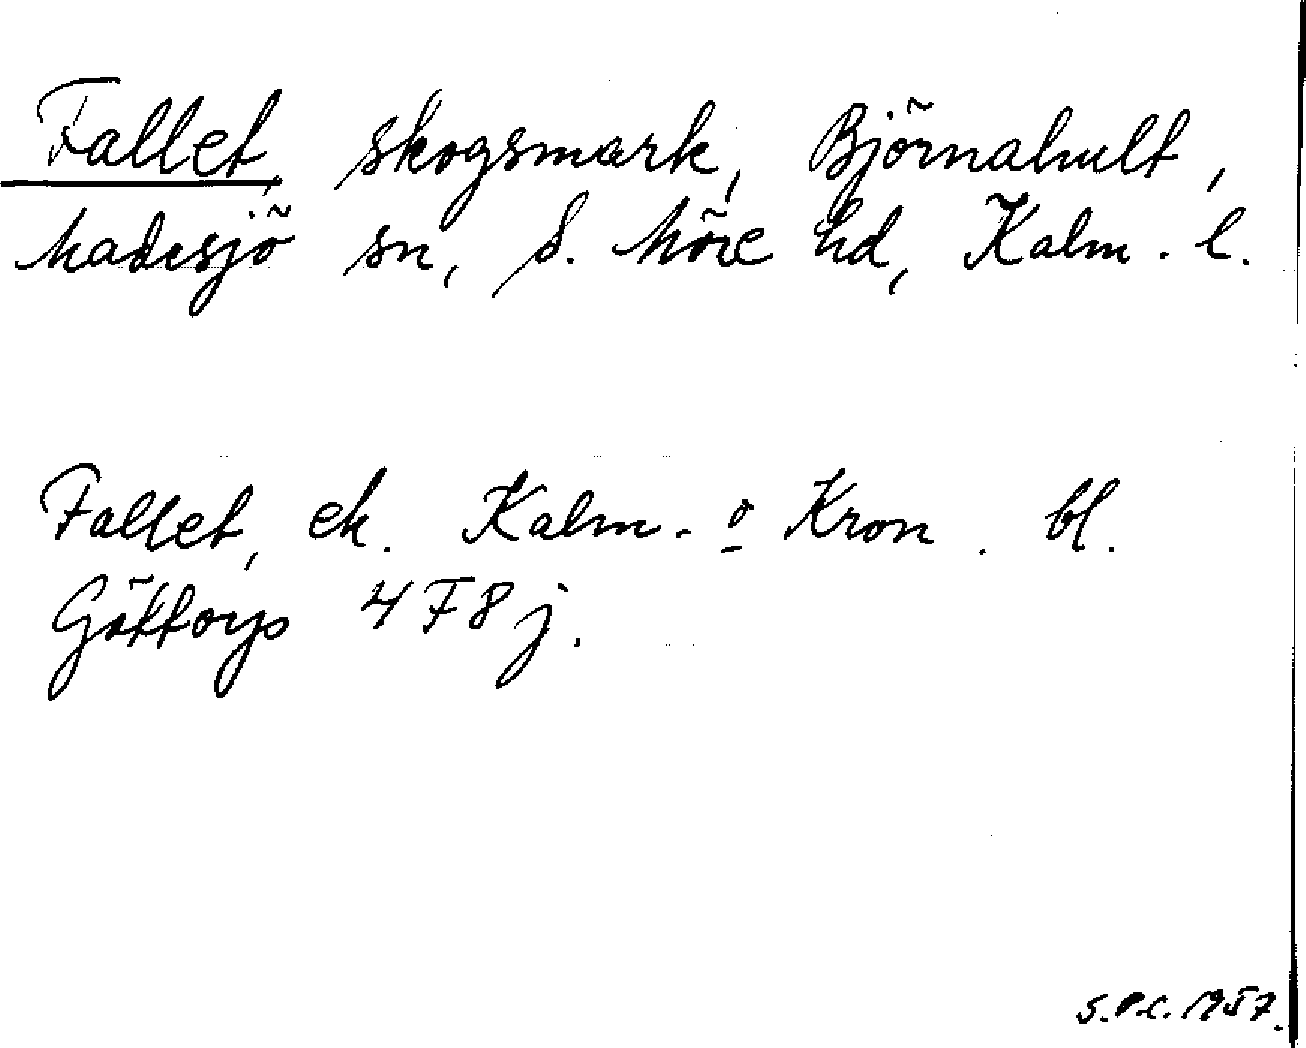 Fallet, skogsmark, Björnahult,
Madesjö sn, S. Möre hd, Kalm. l.
Fallet, ek. Kalm. o Kron. bl.
Göttorps 4 F 8 j.
S.P.C. 1957.